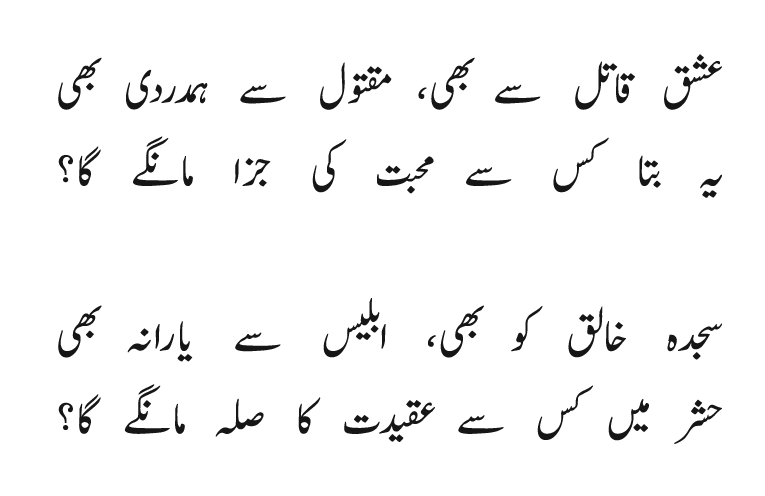 عشق قاتل سے بھی، مقتول سے ہمدردی بھی
یہ بتا کس سے محبت کی جزا مانگے گا؟
سجدہ خالق کو بھی، ابلیس سے یارانہ بھی
حشر میں کس سے عقیدت کا صلہ مانگے گا؟